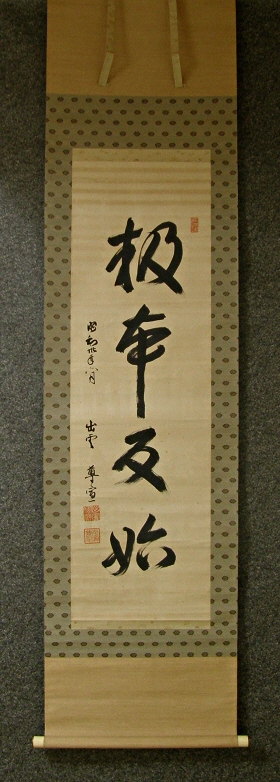 報本反始
昭和卅年八月 出雲 尊宣